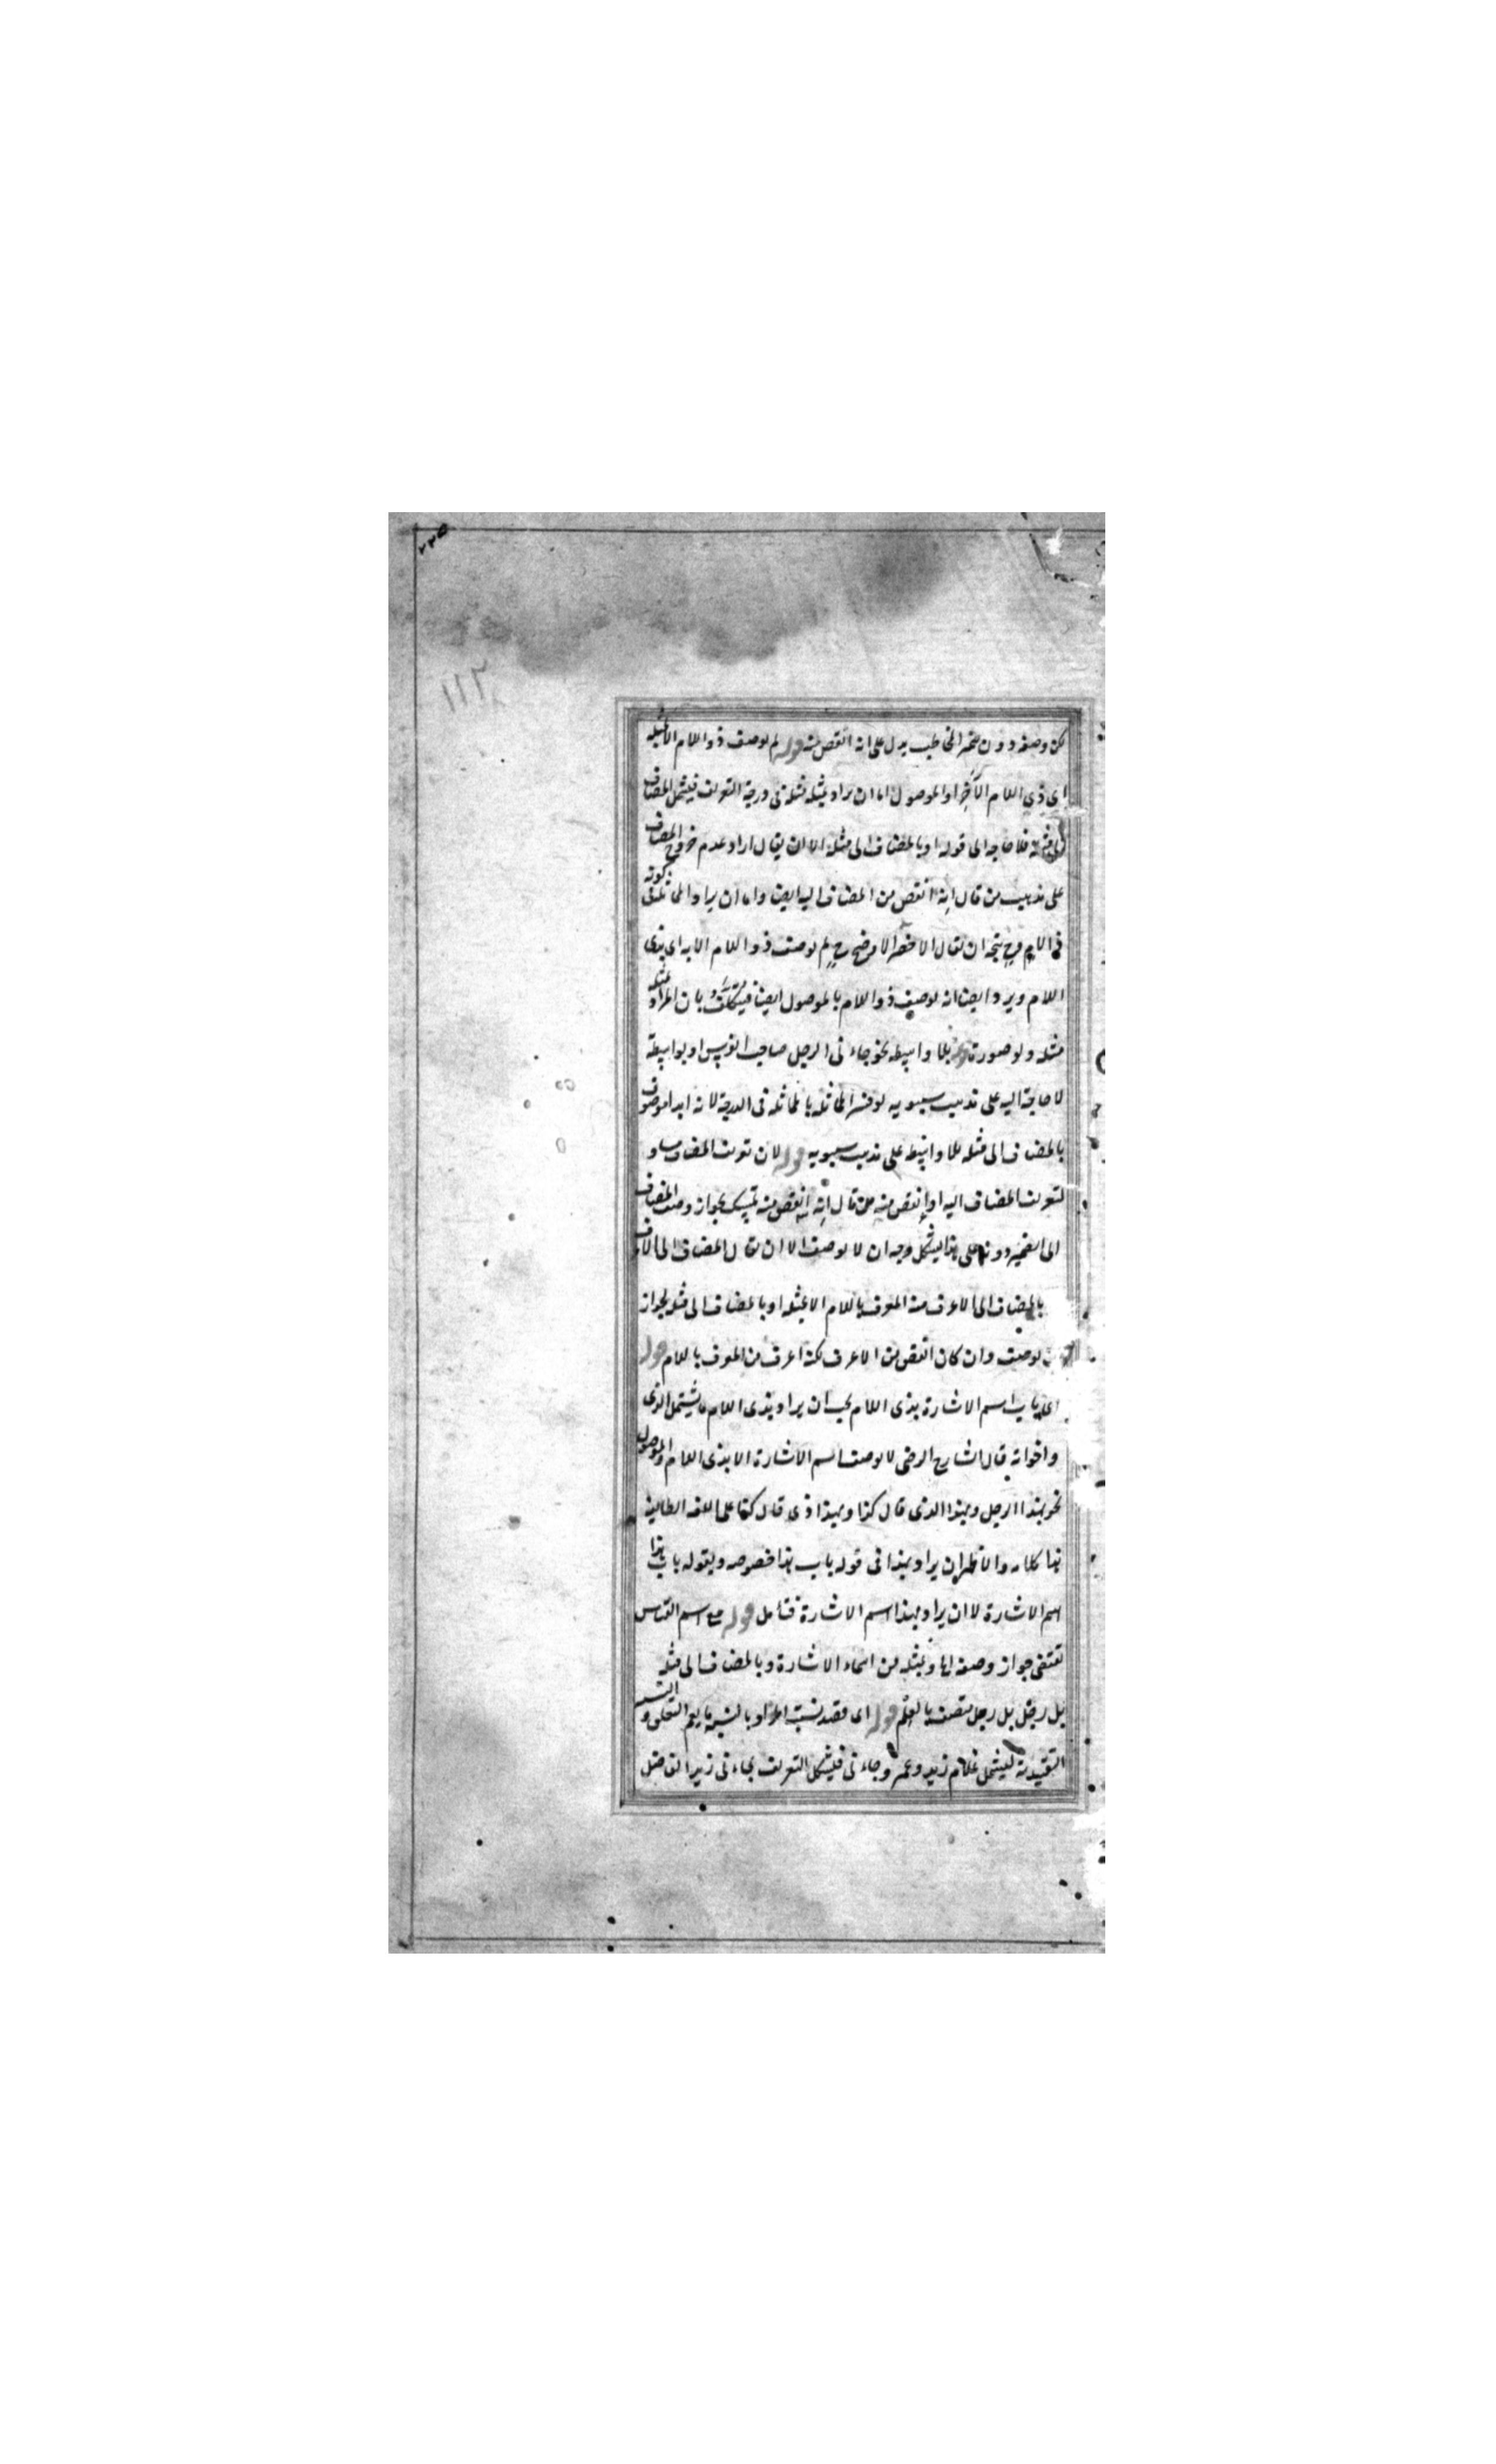 ٢٢٥
١١٢
لكن وصفه دون ضمير المخاطب يدل على انه انقص منه قوله لم يوصف ذو اللام الا بمثله
اى ذي اللام الآخر او الموصول اما ان يراد بمثله مثله فى درجة التعريف فيشمل المضاف
الى مثله فلا حاجه الى قوله او بالمضاف الى مثله الا ان يقال اراد عدم خروج المضاف
على مذهب من قال انه انقص من المضاف اليه ايضا واما ان يراد المماثلة فى كونه
ذو اللام وح يتجه ان يقال الاخصر الاوضح ح لم يوصف ذو اللام الا به اى بذى
اللام ويرد ايضا انه يوصف ذو اللام بالموصول ايضا فيتكلف بان المراد بمثله
مثله ولو صورة قوله بلا واسطه نحو جاءنى الرجل صاحب الفرس او بواسطة
لا حاجة اليه على مذهب سيبويه لو فسر المماثله بالمماثله فى الدرجة لانه ابدا موصوف
بالمضاف الى مثله بلا واسطه على مذهب سيبويه قوله لان تعريف المضاف مساو
لتعريف المضاف اليه او انقص منه من قال انه انقص منه تمسك بجواز وصف المضاف
الى الضمير دونه وعلى هذا يشكل وجه ان لا يوصف الا ان يقال المضاف الى الاعرف
بالمضاف الى الاعرف منه المعرف باللام الا بمثله او بالمضاف الى مثله لجواز
ان يوصف وان كان انقص من الاعرف لكنه اعرف من المعرف باللام قوله
اى باب اسم الاشارة بذى اللام يجب ان يراد بذى اللام ما يشتمل الذى
واخواته قال الشارح الرضى لا يوصف اسم الاشارة الا بذى اللام والموصول
نحو بهذا الرجل وبهذا الذى قال كذا وبهذا ذى قال كذا على اللغه الطائية
هذا كلامه والاظهر ان يراد بهذا فى قوله باب هذا خصوصه وبقوله باب هذا
اسم الاشارة لا ان يراد بهذا اسم الاشارة فتأمل قوله مع اسم القياس
تقتضى جواز وصفه اما بمثله من اسماء الاشارة وبالمضاف الى مثله
بل رجل بل رجل متصف بالعلم قوله اى قصد نسبت المراد بالنسبه ما يعم التعلق والنسبه
التقييدية ليشمل غلام زيد وعمرو جاءنى فيشكل التعريف بجاءنى زيد الفاضل